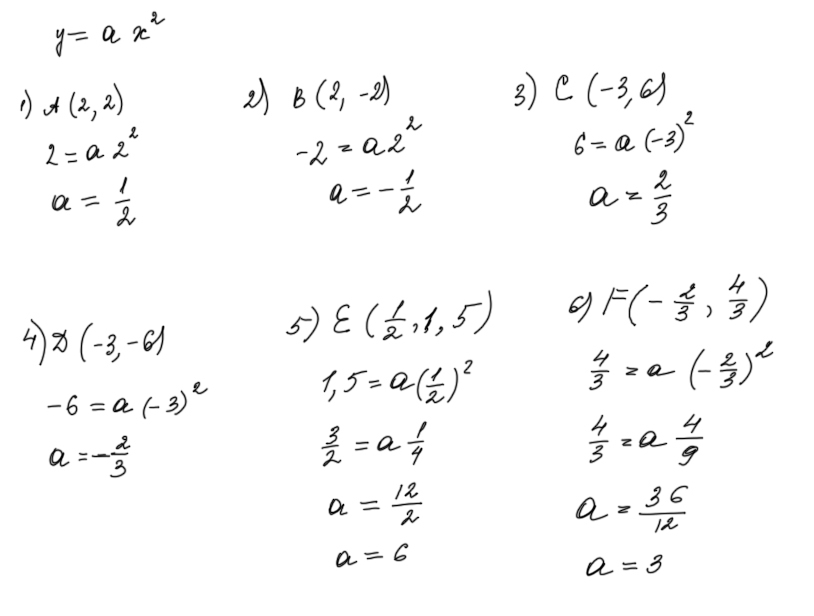 y = a x²
1) A (2, 2)
2 = a 2²
a = 1/2
2) B (2, -2)
-2 = a 2²
a = - 1/2
3) C (-3, 6)
6 = a (-3)²
a = 2/3
4) D (-3, -6)
-6 = a (-3)²
a = - 2/3
5) E (1/2, 1,5)
1,5 = a (1/2)²
3/2 = a 1/4
a = 12/2
a = 6
6) F (- 2/3, 4/3)
4/3 = a (- 2/3)²
4/3 = a 4/9
a = 36/12
a = 3